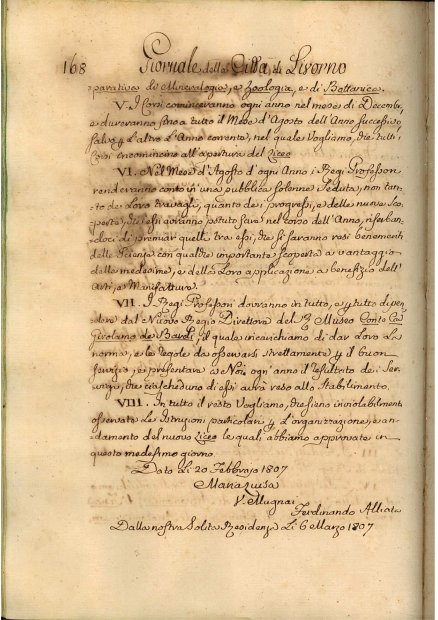 168 Giornale della Città di Livorno
parativa di Mineralogia, e Zoologia, e di Bottanica.
V. I Corsi comincevanno ogni anno nel mese di Decembr,
e dureranno fino a tutto il Mese d'Agosto dell'Anno successivo
salvo l'altro l'Anno corrente, nel quale Vogliamo, che tutti i
Corsi incomincino all'apertura del Liceo
VI. Nel Mese d'Agosto d'ogni Anno i Regj Professori
renderanno conto in una pubblica solenne Seduta, non tan-
to de Loro travagli, quanto dei progressi, e delle nuove Sco-
perte, che essi avranno potuto fare nel corso dell'Anno, riserban-
doci di premiar quelli tra essi, che si saranno resi benemeriti
delle Scienze con qualche importante scoperta a vantaggio
delle medesime, e della Loro applicazione a benefizio dell'
Arti, e Manifatture.
VII. I Regj Professori dovranno in tutto, e p tutto dipen-
dere dal Nuovo Regio Direttore del R. Museo Conte Ca.
Girolamo de Bardi, il quale incarichiamo di dar Loro la
norma, e le regole da osservarsi strettamente p il buon
servizio, e presentara a Noi ogn'anno il resultato dei Ser-
vizi, che ciascheduno di essi avrà reso allo Stabilimento.
VIII. In tutto il resto Vogliamo, che sieno inviolabilment
osservate le Istruzioni particolari p l'organizzazione, e an-
damento del nuovo Liceo le quali abbiamo approvate in
questo medesimo giorno
Dato li 20 Febbrajo 1807
Maria Luisa
V. Mugnai
Ferdinando Alliata
Dalla nostra Solita Residenza Li 6 Marzo 1807